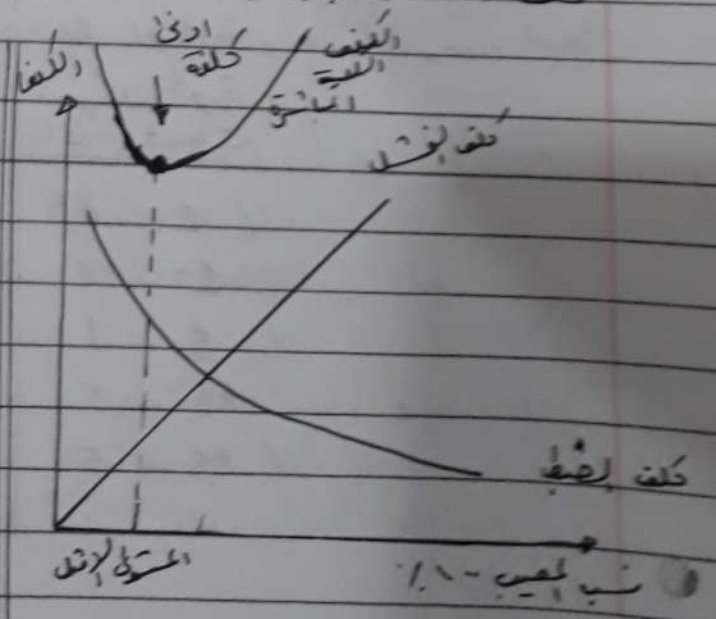 الكلف
ادنى
كلفة
الكلف
الكلية
المباشرة
كلف الفشل
كلف الضبط
المستوى الامثل
نسب المعيب ١٠٠٪